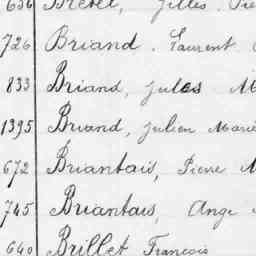 636 Bretel, Gilles, Pie
726 Briand, Laurent
833 Briand, Jules M
1395 Briand, Julien Marie
672 Briantais, Pierre M
745 Briantais, Ange
640 Brillet François